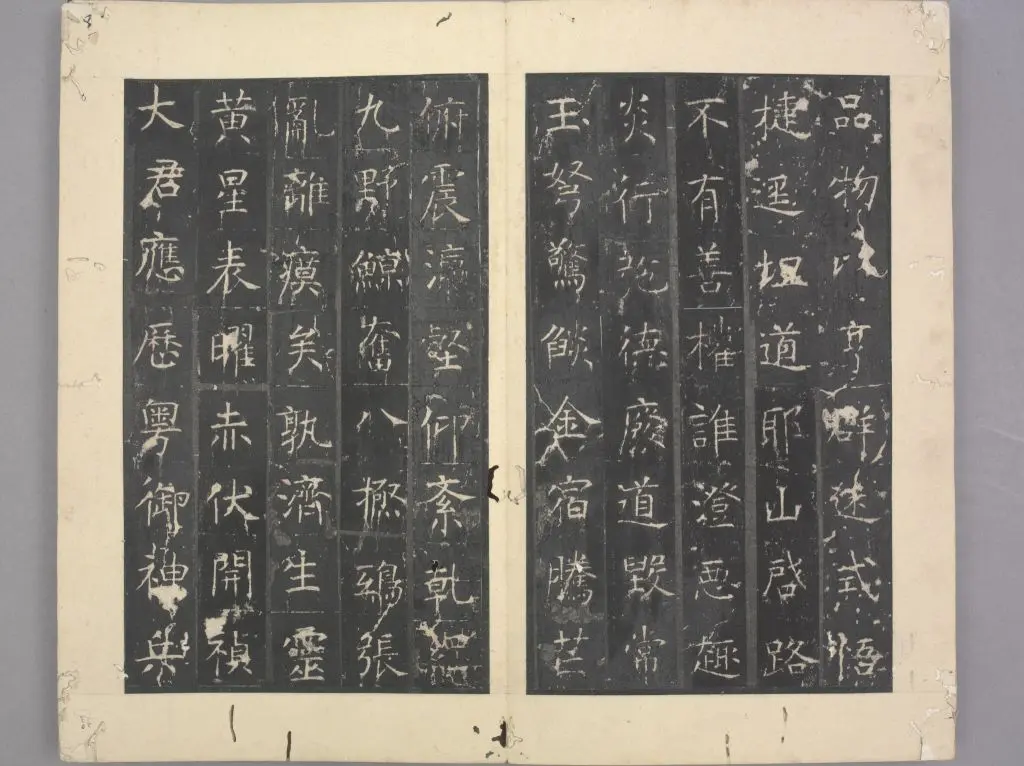 品物以亨群迷式悟
捷逕坦道耶山啓路
不有善權誰澄惡趣
炎行弛德廢道毀常
玉弩驚燄金宿騰芒
俯震瀛壑仰紊乾
九野鯨奮八極鴟張
亂離瘼矣孰濟生靈
黃星表曜赤伏開禎
大君應歷粵御神兵